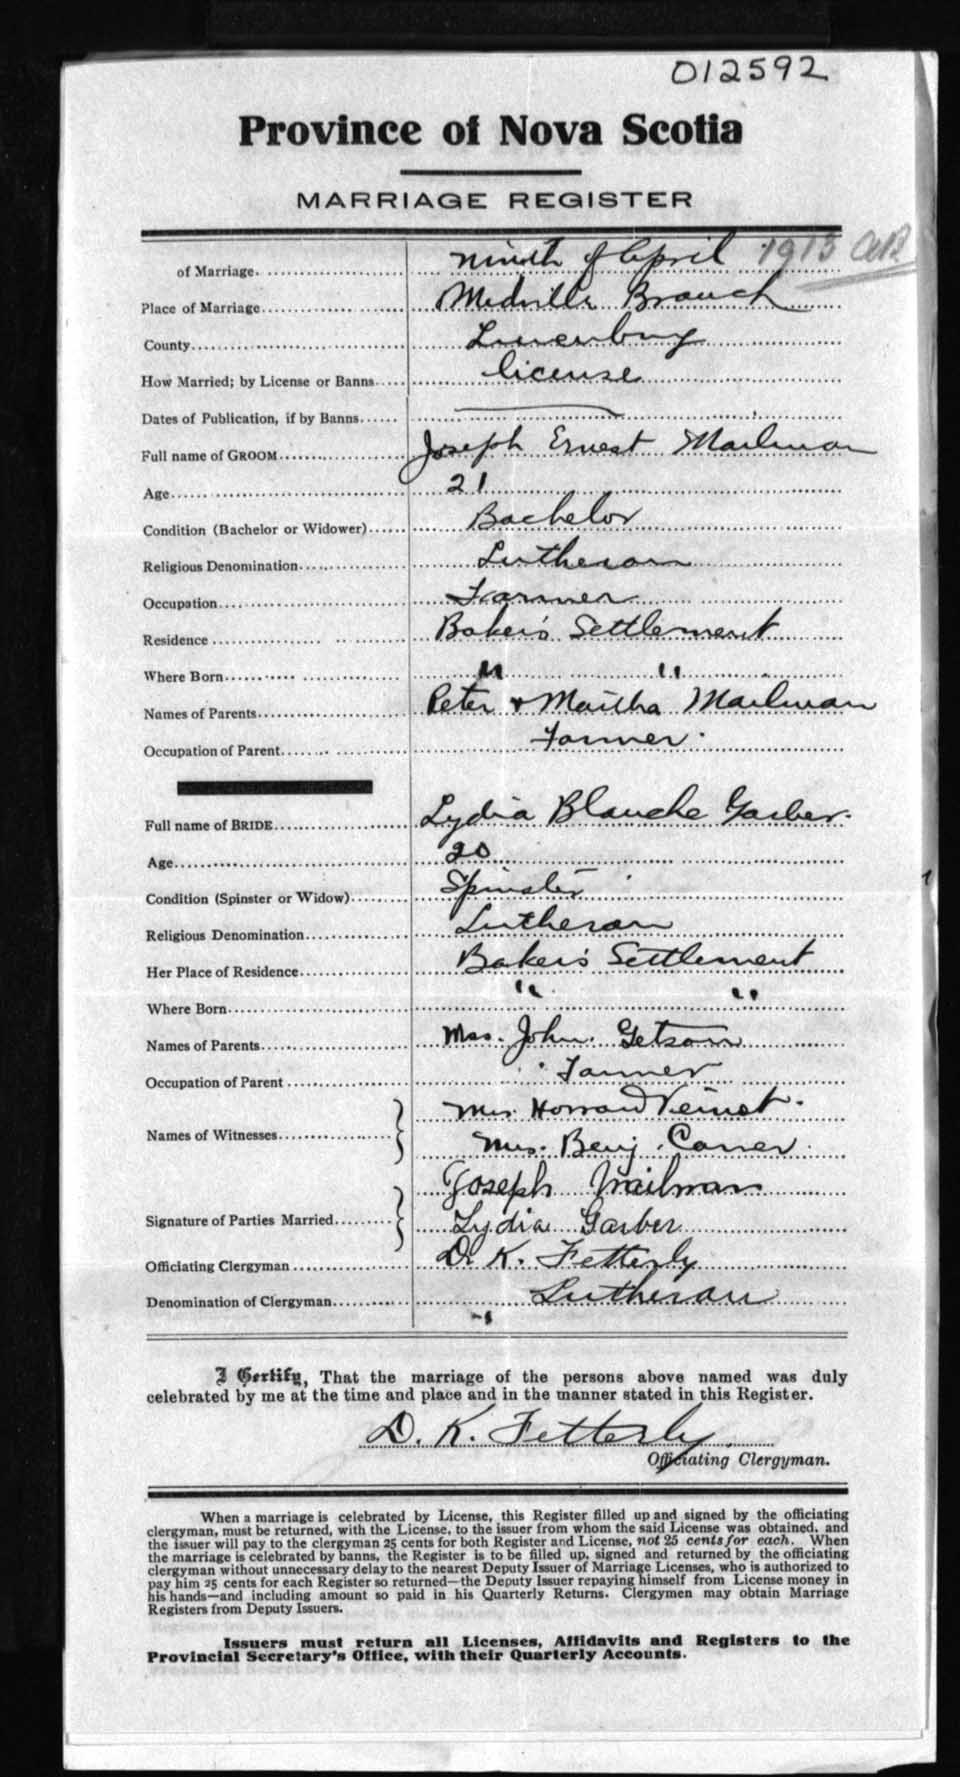 012592
Province of Nova Scotia
MARRIAGE REGISTER
of Marriage. ninth of April 1913 AB
Place of Marriage Midville Branch
County Lunenburg
How Married; by License or Banns license
Dates of Publication, if by Banns
Full name of GROOM Joseph Ernest Mailman
Age 21
Condition (Bachelor or Widower) Bachelor
Religious Denomination Lutheran
Occupation Farmer
Residence Baker's Settlement
Where Born " "
Names of Parents Peter + Martha Mailman
Occupation of Parent Farmer
Full name of BRIDE Lydia Blanche Garber.
Age 20
Condition (Spinster or Widow) Spinster
Religious Denomination Lutheran
Her Place of Residence Baker's Settlement
Where Born " "
Names of Parents Mrs. John Getson
Occupation of Parent Farmer
Mrs. Howard Veinot.
Names of Witnesses
Mrs. Benj.
Joseph Mailman
Signature of Parties Married
Lydia Garber
Officiating Clergyman D. K. Fetterly
Denomination of Clergyman Lutheran
I Certify, That the marriage of the persons above named was duly
celebrated by me at the time and place and in the manner stated in this Register.
D. K. Fetterly
Officiating Clergyman.
When a marriage is celebrated by License, this Register filled up and signed by the officiating
clergyman, must be returned, with the License, to the issuer from whom the said License was obtained, and
the issuer will pay to the clergyman 25 cents for both Register and License, not 25 cents for each. When
the marriage is celebrated by banns, the Register is to be filled up, signed and returned by the officiating
clergyman without unnecessary delay to the nearest Deputy Issuer of Marriage Licenses, who is authorized to
pay him 25 cents for each Register so returned—the Deputy Issuer repaying himself from License money in
his hands—and including amount so paid in his Quarterly Returns. Clergymen may obtain Marriage
Registers from Deputy Issuers.
Issuers must return all Licenses, Affidavits and Registers to the
Provincial Secretary's Office, with their Quarterly Accounts.